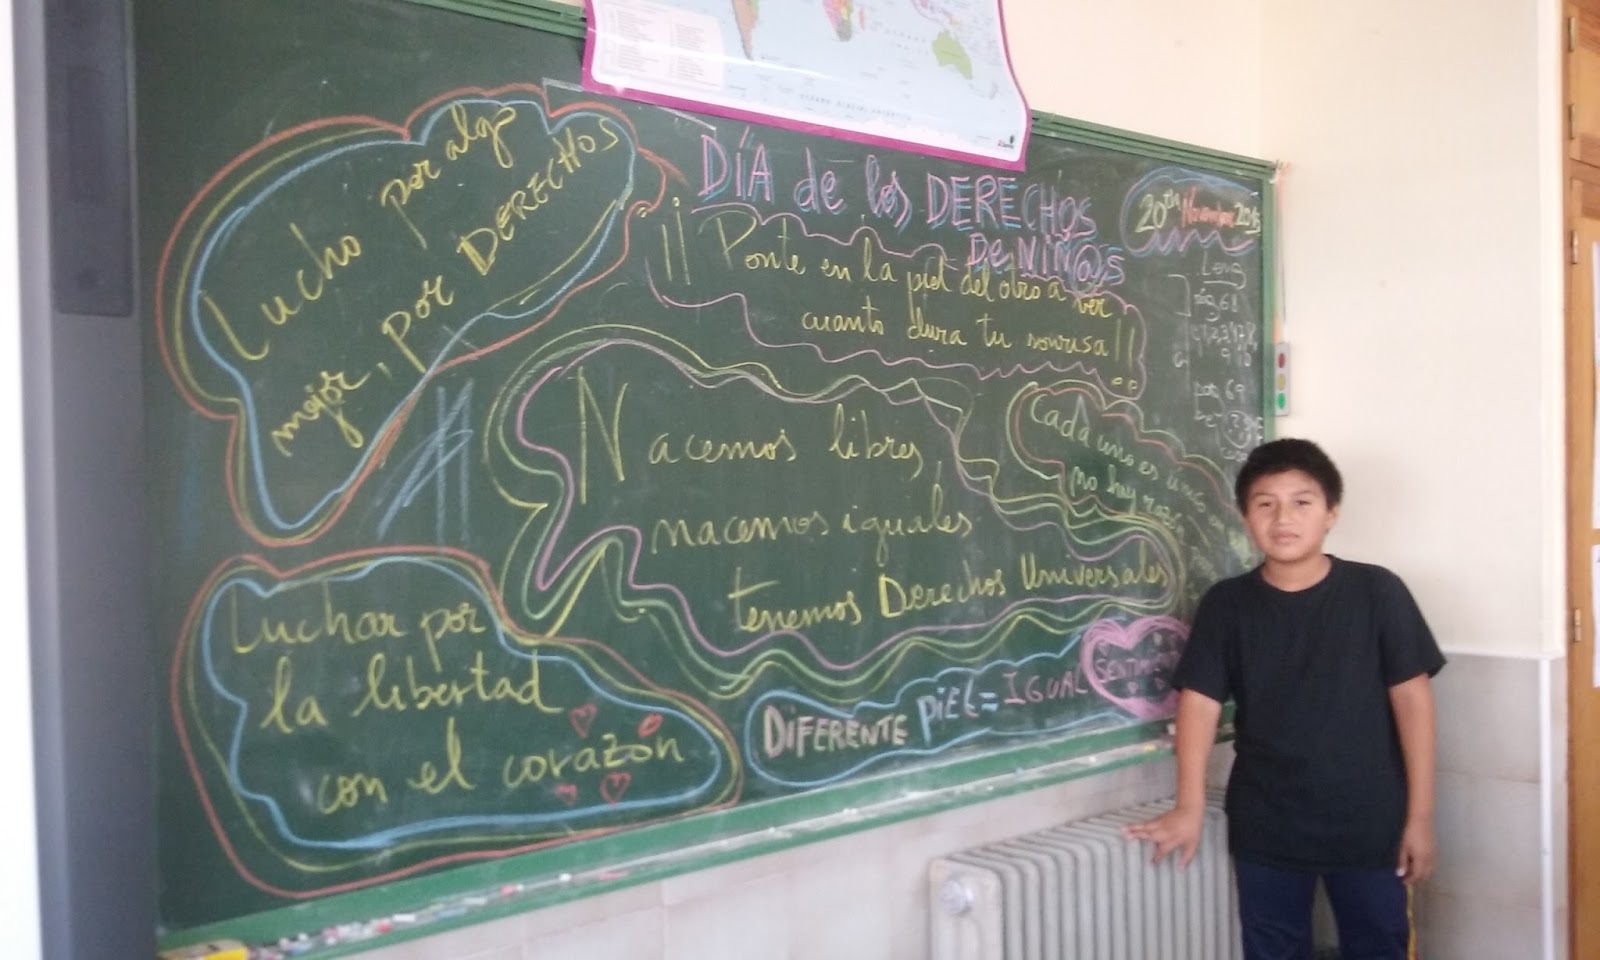 Lucho por algo
mejor, por DERECHOS
DÍA de los DERECHOS
De NIÑ@S
20th November 2015
¡¡Ponte en la piel del otro a ver
cuanto dura tu sonrisa!!
Leng
pág 68
Nacemos libres,
nacemos iguales
tenemos Derechos Universales
Cada uno es único
no hay
Luchar por
la libertad
con el corazón
DIFERENTE piel = IGUAL
OCÉANO GLACIAL ANTÁRTICO